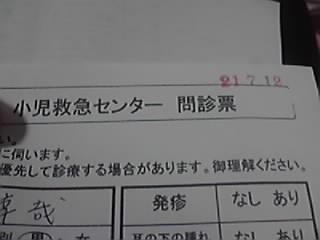 21.7.12
小児救急センター 問診票
い。
に伺います。
優先して診療する場合があります。御理解ください。
哉 発疹 なし あり
別 男 女 耳の下の腫れ なし